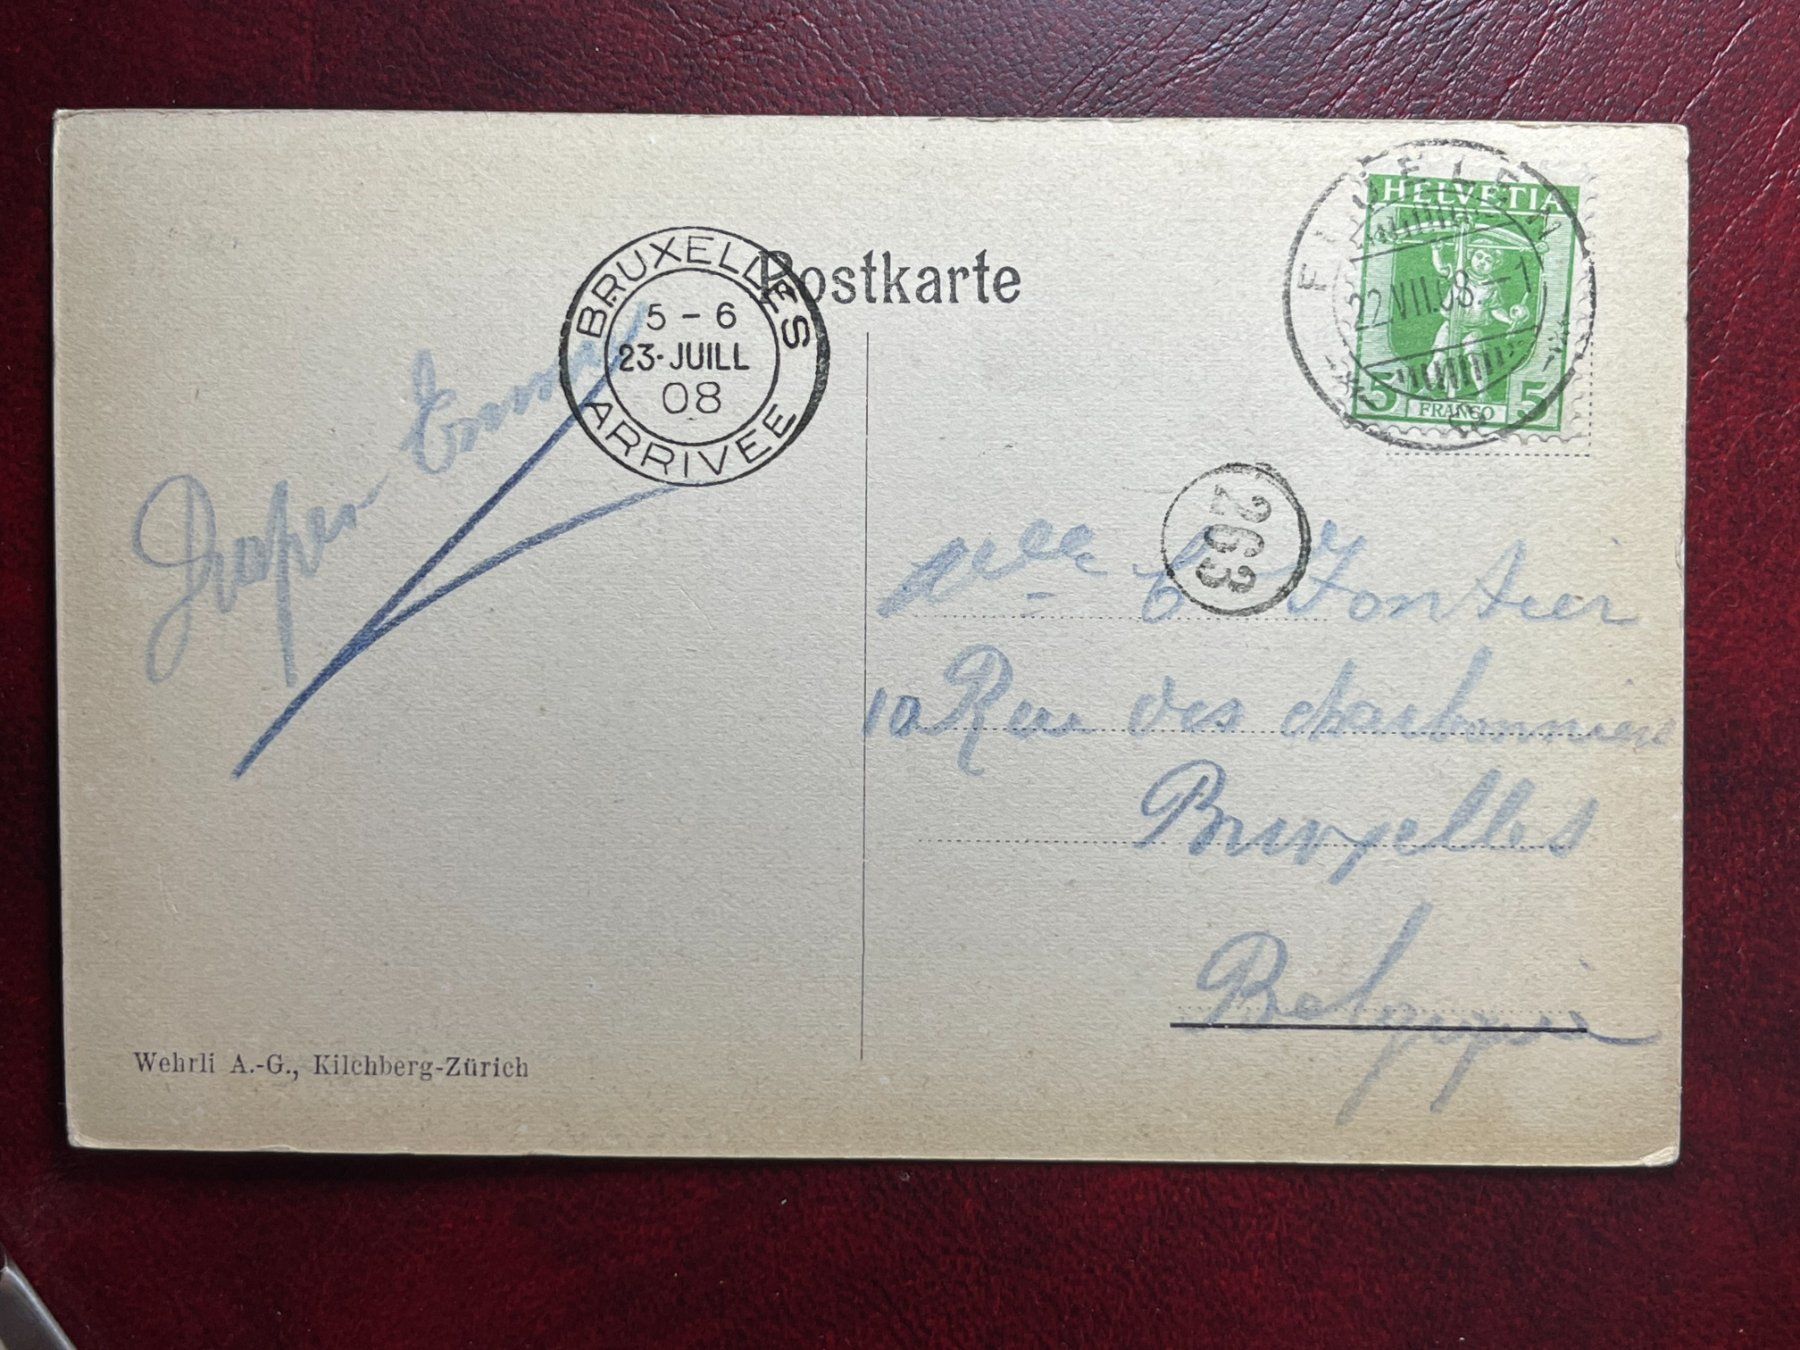 Postkarte
BRUXELLES
5 - 6
23 • JUILL
08
ARRIVEE
FLUELEN
22.VII.08.-1
HELVETIA
5 FRANCO 5
263
Mlle C Fontier
10 Rue des charbonniers
Bruxelles
Belgique
Wehrli A.-G., Kilchberg-Zürich